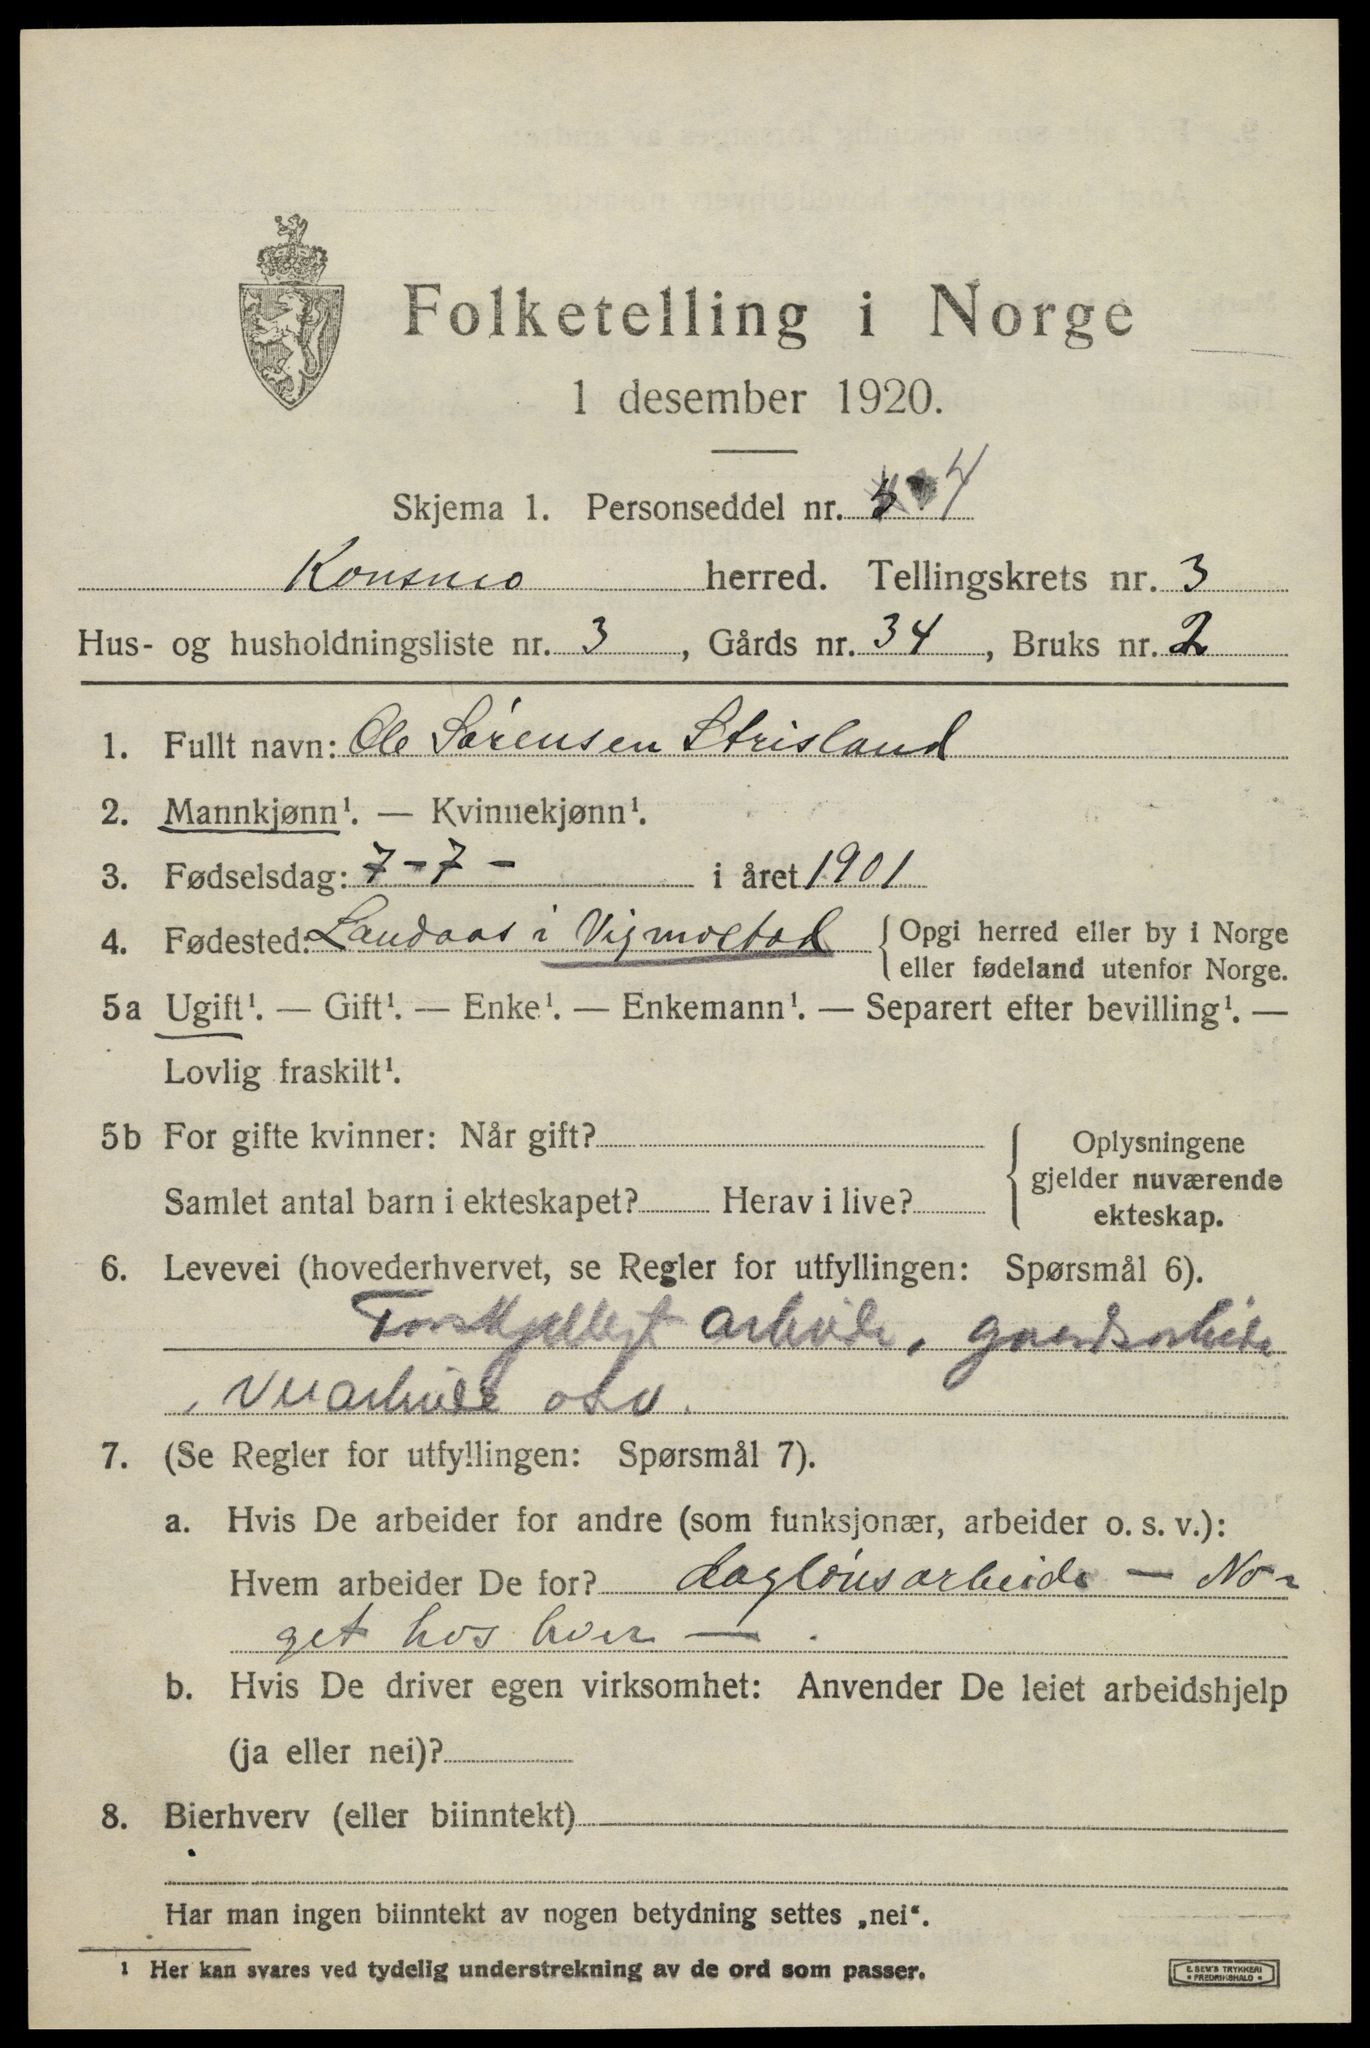 Folketelling i Norge
1 desember 1920.
Skjema 1. Personseddel nr. 4
Konsmo herred. Tellingskrets nr. 3
Hus- og husholdningsliste nr. 3, Gårds nr. 34, Bruks nr. 2
1. Fullt navn: Ole Sørensen Strisland
2. Mannkjønn¹. — Kvinnekjønn¹.
3. Fødselsdag: 7-7- i året 1901
4. Fødested: Landaas i Vigmostad {Opgi herred eller by i Norge
eller fødeland utenfor Norge.
5a Ugift¹. — Gift¹. — Enke¹. — Enkemann¹. — Separert efter bevilling¹. —
Lovlig fraskilt¹.
5b For gifte kvinner: Når gift?
Samlet antal barn i ekteskapet? Herav i live?
Oplysningene
gjelder nuværende
ekteskap.
6. Levevei (hovederhvervet, se Regler for utfyllingen: Spørsmål 6).
Forskjelligt arbeide, gaardsarbeide
, Veiarbeide osv.
7. (Se Regler for utfyllingen: Spørsmål 7).
a. Hvis De arbeider for andre (som funksjonær, arbeider o. s. v.):
Hvem arbeider De for? daglönsarbeide — No-
get hos hver — .
b. Hvis De driver egen virksomhet: Anvender De leiet arbeidshjelp
(ja eller nei)?
8. Bierhverv (eller biinntekt)
Har man ingen biinntekt av nogen betydning settes „nei".
¹ Her kan svares ved tydelig understrekning av de ord som passer.
E. SEM'S TRYKKERI
FREDRIKSHALD